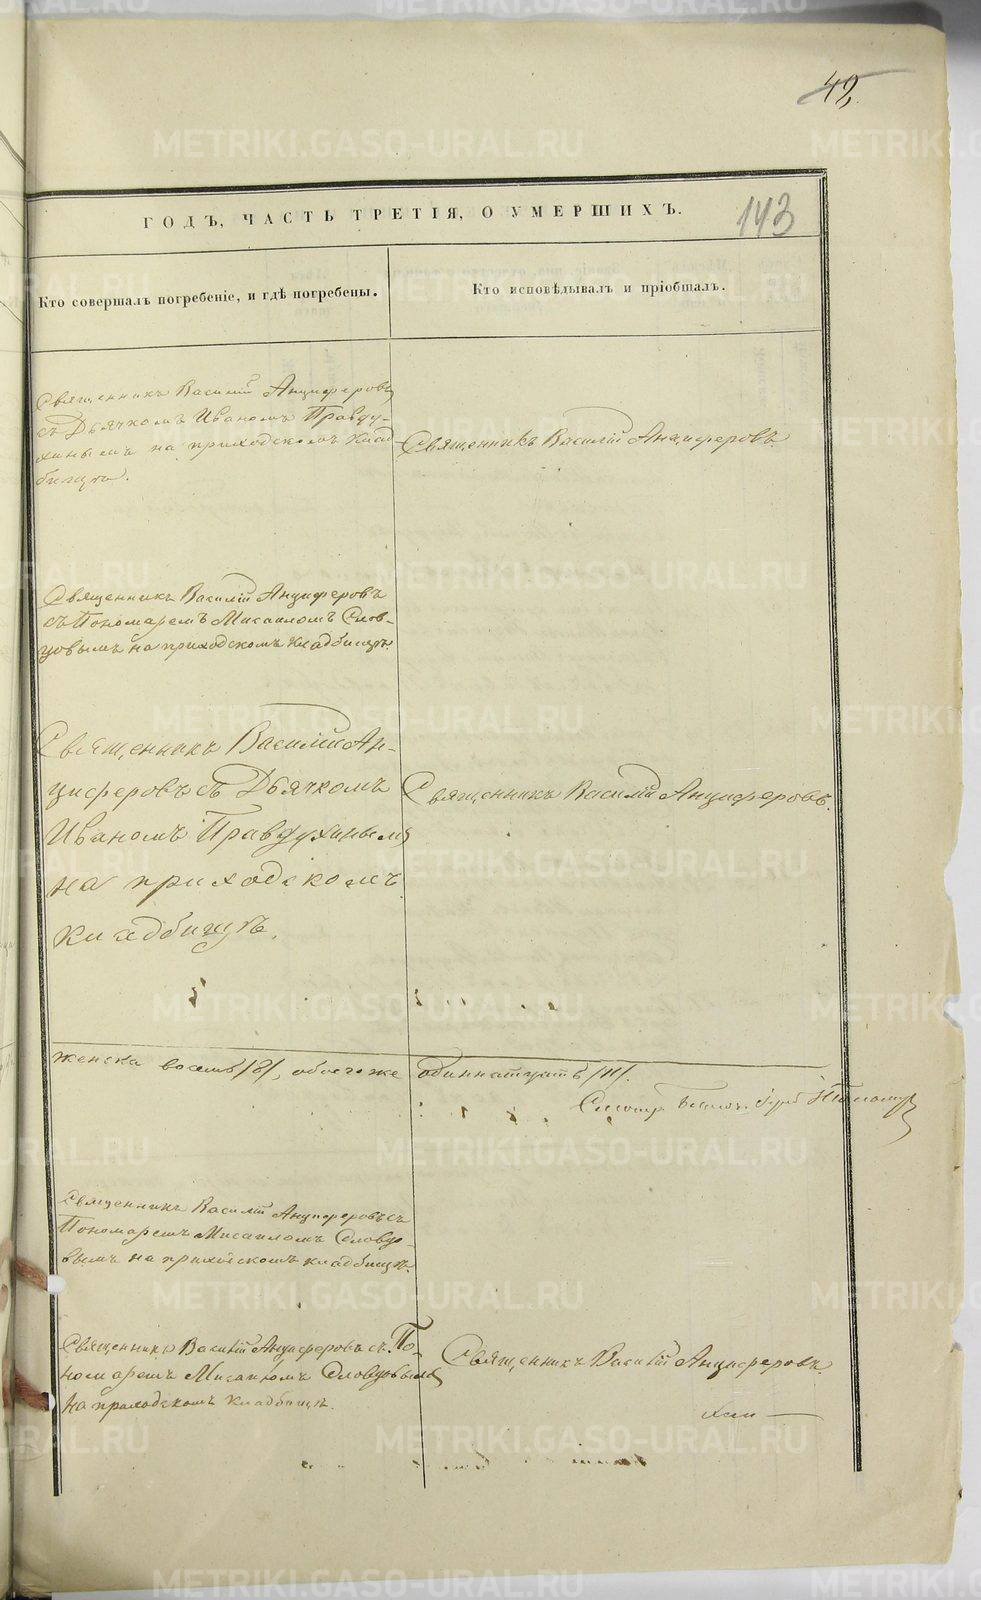 42
143
ГОДЪ, ЧАСТЬ ТРЕТІЯ, О УМЕРШИХЪ.
Кто совершалъ погребеніе, и гдѣ погребены.
Кто исповѣдывалъ и пріобшалъ.
Священникъ Василій Анциферовъ
съ Дьячкомъ Иваномъ Правду-
хинымъ на приходскомъ клад-
бищѣ.
Священникъ Василій Анциферовъ.
Священникъ Василій Анциферовъ
съ Пономаремъ Мисаиломъ Слов-
цовымъ на приходскомъ кладбищѣ.
Священникъ Василій Ан-
циферовъ съ Дьячкомъ
Иваномъ Правдухинымъ
на приходскомъ
кладбищѣ.
Священникъ Василій Анциферовъ.
женска восемь /8/, обоего же одиннатцать /11/.
Священникъ Василій Анциферовъ съ
Пономаремъ Мисаиломъ Словцо-
вымъ на приходскомъ кладбищѣ.
Священникъ Василій Анциферовъ съ По-
номаремъ Мисаиломъ Словцовымъ
на приходскомъ кладбищѣ.
Священникъ Василій Анциферовъ.
METRIKI.GASO-URAL.RU